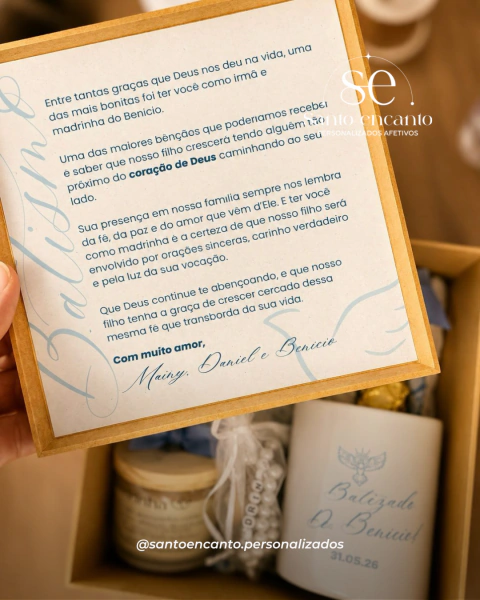 Batismo
Entre tantas graças que Deus nos deu na vida, uma
das mais bonitas foi ter você como irmã e
madrinha do Benício.
Uma das maiores bênçãos que poderíamos receber
é saber que nosso filho crescerá tendo alguém tão
próximo do coração de Deus caminhando ao seu
lado.
Sua presença em nossa família sempre nos lembra
da fé, da paz e do amor que vêm d'Ele. E ter você
como madrinha é a certeza de que nosso filho será
envolvido por orações sinceras, carinho verdadeiro
e pela luz da sua vocação.
Que Deus continue te abençoando, e que nosso
filho tenha a graça de crescer cercado dessa
mesma fé que transborda da sua vida.
Com muito amor,
Mainy, Daniel e Benício
se
santo encanto
PERSONALIZADOS AFETIVOS
Batizado
D. Benício
31.05.26
@santoencanto.personalizados